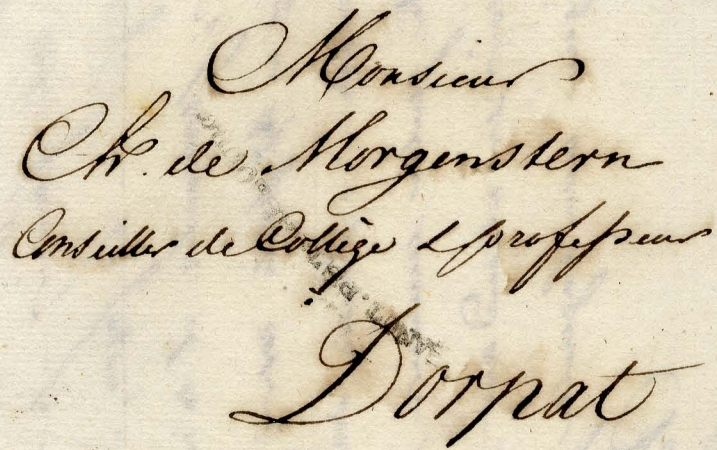 Monsieur
Chr. de Morgenstern
Conseiller de Collège & professeur
Dorpat